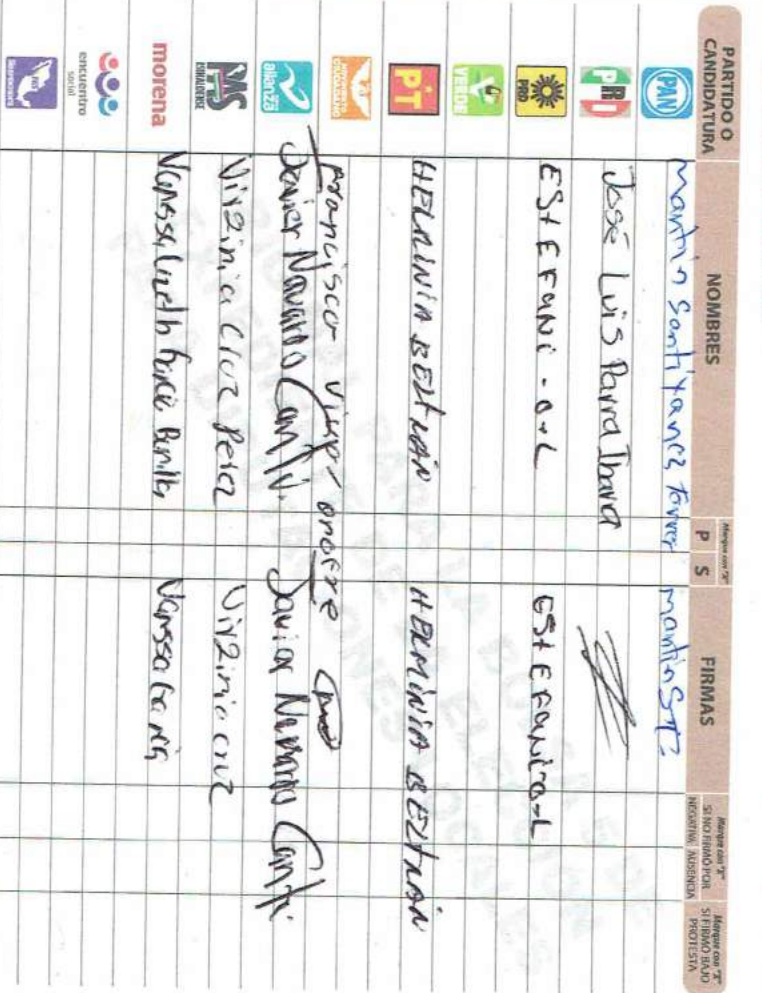 PARTIDO O CANDIDATURA NOMBRES Marque con "X" P S FIRMAS Marque con "X" SI NO FIRMÓ POR NEGATIVA AUSENCIA Marque con "X" SI FIRMÓ BAJO PROTESTA
PAN Martin Santiyanes Torres Martin STZ
PRI José Luis Parra Ibarra
PRD EStEFANi-O-L EStEFANi-O-L
VERDE
PT HERMINIA BELTRÁN HERMINIA BELTRÁN
MOVIMIENTO CIUDADANO Francisco onofre
alianza Javier Navarro Cantú Javier Navarro Cantú
PAS SINALOENSE Virginia Cruz Perez Virginia cruz
morena Vanessa Lizeth García Vanssa García
encuentro social